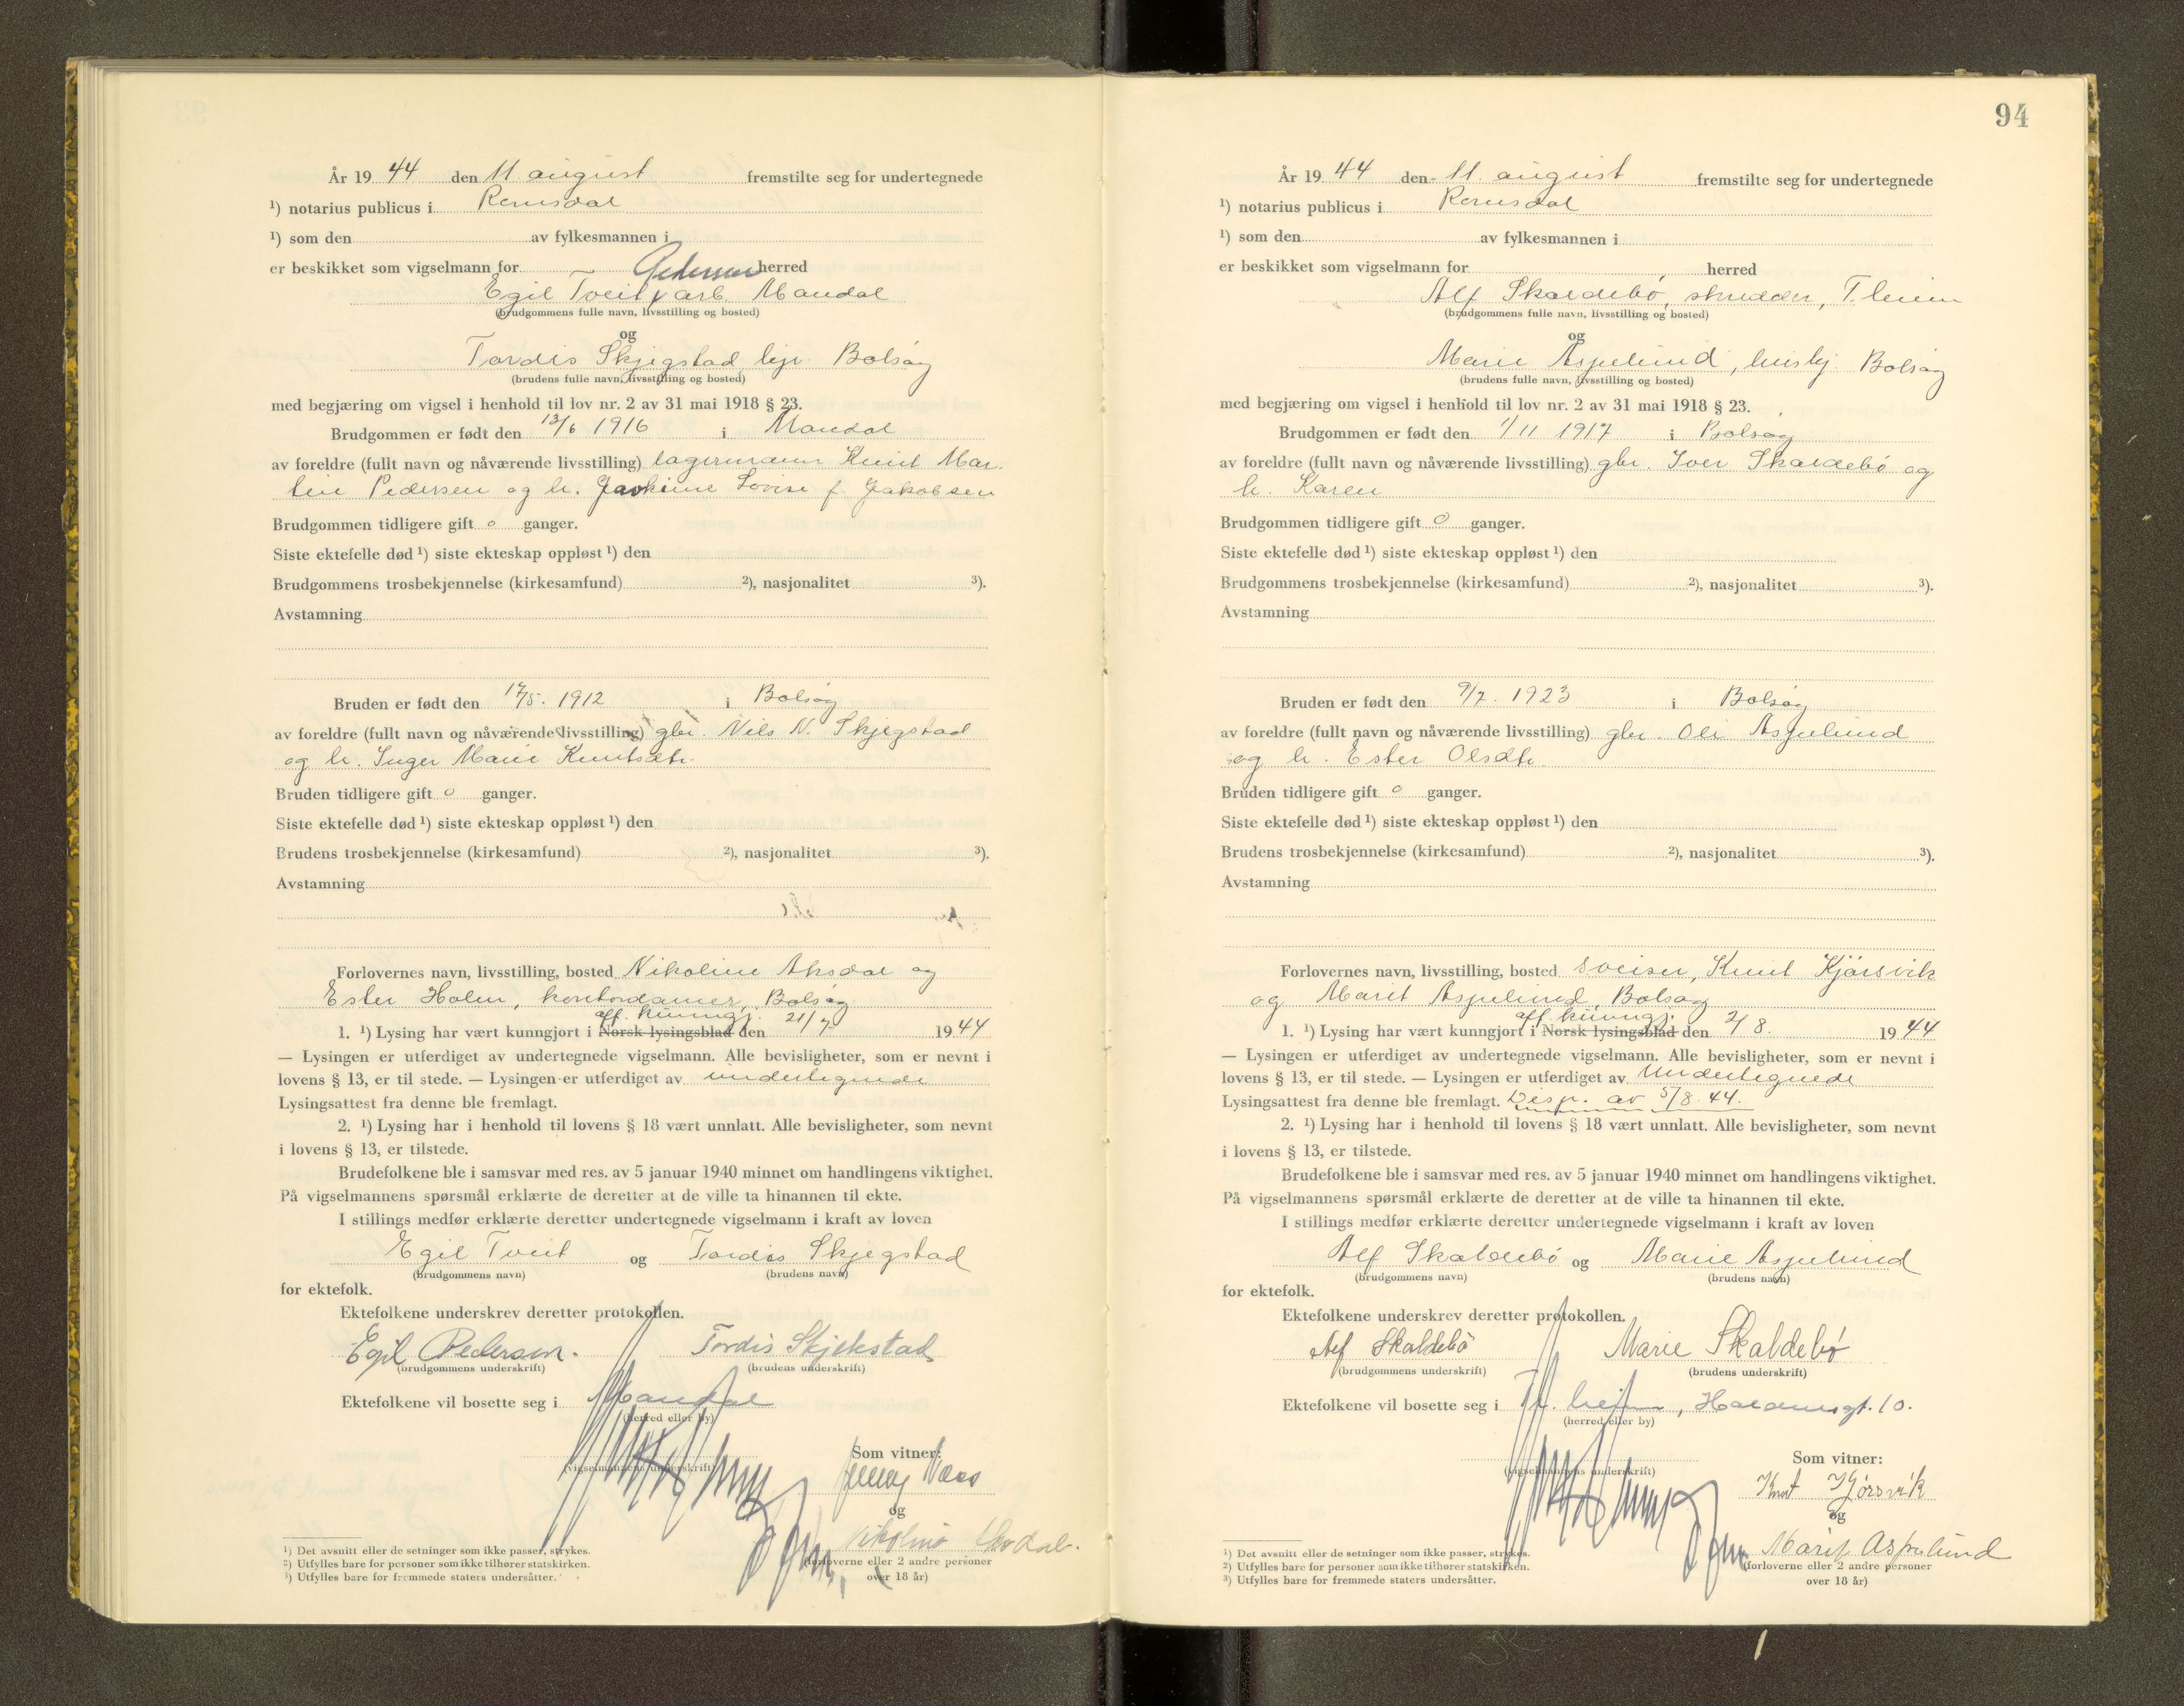 År 19 44 den 11 august fremstilte seg for undertegnede
¹) notarius publicus i Romsdal
¹) som den av fylkesmannen i
er beskikket som vigselmann for herred
Pedersen
Egil Tveit, arb. Mandal
(brudgommens fulle navn, livsstilling og bosted)
og
Tordis Skjegstad, hjv. Bolsøy
(brudens fulle navn, livsstilling og bosted)
med begjæring om vigsel i henhold til lov nr. 2 av 31 mai 1918 § 23.
Brudgommen er født den 13/6 1916 i Mandal
av foreldre (fullt navn og nåværende livsstilling) lagermann Knut Mar
tin Pedersen og h. Joakime Lovise f. Jakobsen
Brudgommen tidligere gift 0 ganger.
Siste ektefelle død ¹) siste ekteskap oppløst ¹) den
Brudgommens trosbekjennelse (kirkesamfund) ²), nasjonalitet ³).
Avstamning
Bruden er født den 17/5. 1912 i Bolsøy
av foreldre (fullt navn og nåværende livsstilling) gbr. Nils N. Skjegstad
og h. Inger Marie Knutsdtr.
Bruden tidligere gift 0 ganger.
Siste ektefelle død ¹) siste ekteskap oppløst ¹) den
Brudens trosbekjennelse (kirkesamfund) ²), nasjonalitet ³).
Avstamning
Forlovernes navn, livsstilling, bosted Nikoline Aksdal og
Ester Holm, kontordamer, Bolsøy
off. kunngj.
1. ¹) Lysing har vært kunngjort i Norsk lysingsblad den 21/7 1944
— Lysingen er utferdiget av undertegnede vigselmann. Alle bevisligheter, som er nevnt i
lovens § 13, er til stede. — Lysingen er utferdiget av undertegnede
Lysingsattest fra denne ble fremlagt.
2. ¹) Lysing har i henhold til lovens § 18 vært unnlatt. Alle bevisligheter, som nevnt
i lovens § 13, er tilstede.
Brudefolkene ble i samsvar med res. av 5 januar 1940 minnet om handlingens viktighet.
På vigselmannens spørsmål erklærte de deretter at de ville ta hinannen til ekte.
I stillings medfør erklærte deretter undertegnede vigselmann i kraft av loven
Egil Tveit og Tordis Skjegstad
(brudgommens navn) (brudens navn)
for ektefolk.
Ektefolkene underskrev deretter protokollen.
Egil Pedersen. Tordis Skjekstad
(brudgommens underskrift) (brudens underskrift)
Ektefolkene vil bosette seg i Mandal
(herred eller by)
Som vitner:
(vigselmannens underskrift)
Jenny Næss
og
Nikoline Aksdal.
(forloverne eller 2 andre personer
over 18 år)
¹) Det avsnitt eller de setninger som ikke passer, strykes.
²) Utfylles bare for personer som ikke tilhører statskirken.
³) Utfylles bare for fremmede staters undersåtter.
94
År 19 44 den 11. august fremstilte seg for undertegnede
¹) notarius publicus i Romsdal
¹) som den av fylkesmannen i
er beskikket som vigselmann for herred
Alf Skaldebø, skredder, T.heim
(brudgommens fulle navn, livsstilling og bosted)
og
Marie Aspelund, hushj. Bolsøy
(brudens fulle navn, livsstilling og bosted)
med begjæring om vigsel i henhold til lov nr. 2 av 31 mai 1918 § 23.
Brudgommen er født den 1/11 1917 i Bolsøy
av foreldre (fullt navn og nåværende livsstilling) gbr. Iver Skaldebø og
h. Karen
Brudgommen tidligere gift 0 ganger.
Siste ektefelle død ¹) siste ekteskap oppløst ¹) den
Brudgommens trosbekjennelse (kirkesamfund) ²), nasjonalitet ³).
Avstamning
Bruden er født den 9/7. 1923 i Bolsøy
av foreldre (fullt navn og nåværende livsstilling) gbr. Ole Aspelund
og h. Ester Olsdtr.
Bruden tidligere gift 0 ganger.
Siste ektefelle død ¹) siste ekteskap oppløst ¹) den
Brudens trosbekjennelse (kirkesamfund) ²), nasjonalitet ³).
Avstamning
Forlovernes navn, livsstilling, bosted sveiser, Knut Kjørsvik
og Marit Aspelund, Bolsøy
off. kunngj.
1. ¹) Lysing har vært kunngjort i Norsk lysingsblad den 2/8. 1944
— Lysingen er utferdiget av undertegnede vigselmann. Alle bevisligheter, som er nevnt i
lovens § 13, er til stede. — Lysingen er utferdiget av Undertegnede
Lysingsattest fra denne ble fremlagt. Disp. av 5/8. 44.
2. ¹) Lysing har i henhold til lovens § 18 vært unnlatt. Alle bevisligheter, som nevnt
i lovens § 13, er tilstede.
Brudefolkene ble i samsvar med res. av 5 januar 1940 minnet om handlingens viktighet.
På vigselmannens spørsmål erklærte de deretter at de ville ta hinannen til ekte.
I stillings medfør erklærte deretter undertegnede vigselmann i kraft av loven
Alf Skaldebø og Marie Aspelund
(brudgommens navn) (brudens navn)
for ektefolk.
Ektefolkene underskrev deretter protokollen.
Alf Skaldebø Marie Skaldebø
(brudgommens underskrift) (brudens underskrift)
Ektefolkene vil bosette seg i Tr.heim, gt. 10.
(herred eller by)
Som vitner:
(vigselmannens underskrift)
Knut Kjørsvik
og
Marit Aspelund
(forloverne eller 2 andre personer
over 18 år)
¹) Det avsnitt eller de setninger som ikke passer, strykes.
²) Utfylles bare for personer som ikke tilhører statskirken.
³) Utfylles bare for fremmede staters undersåtter.